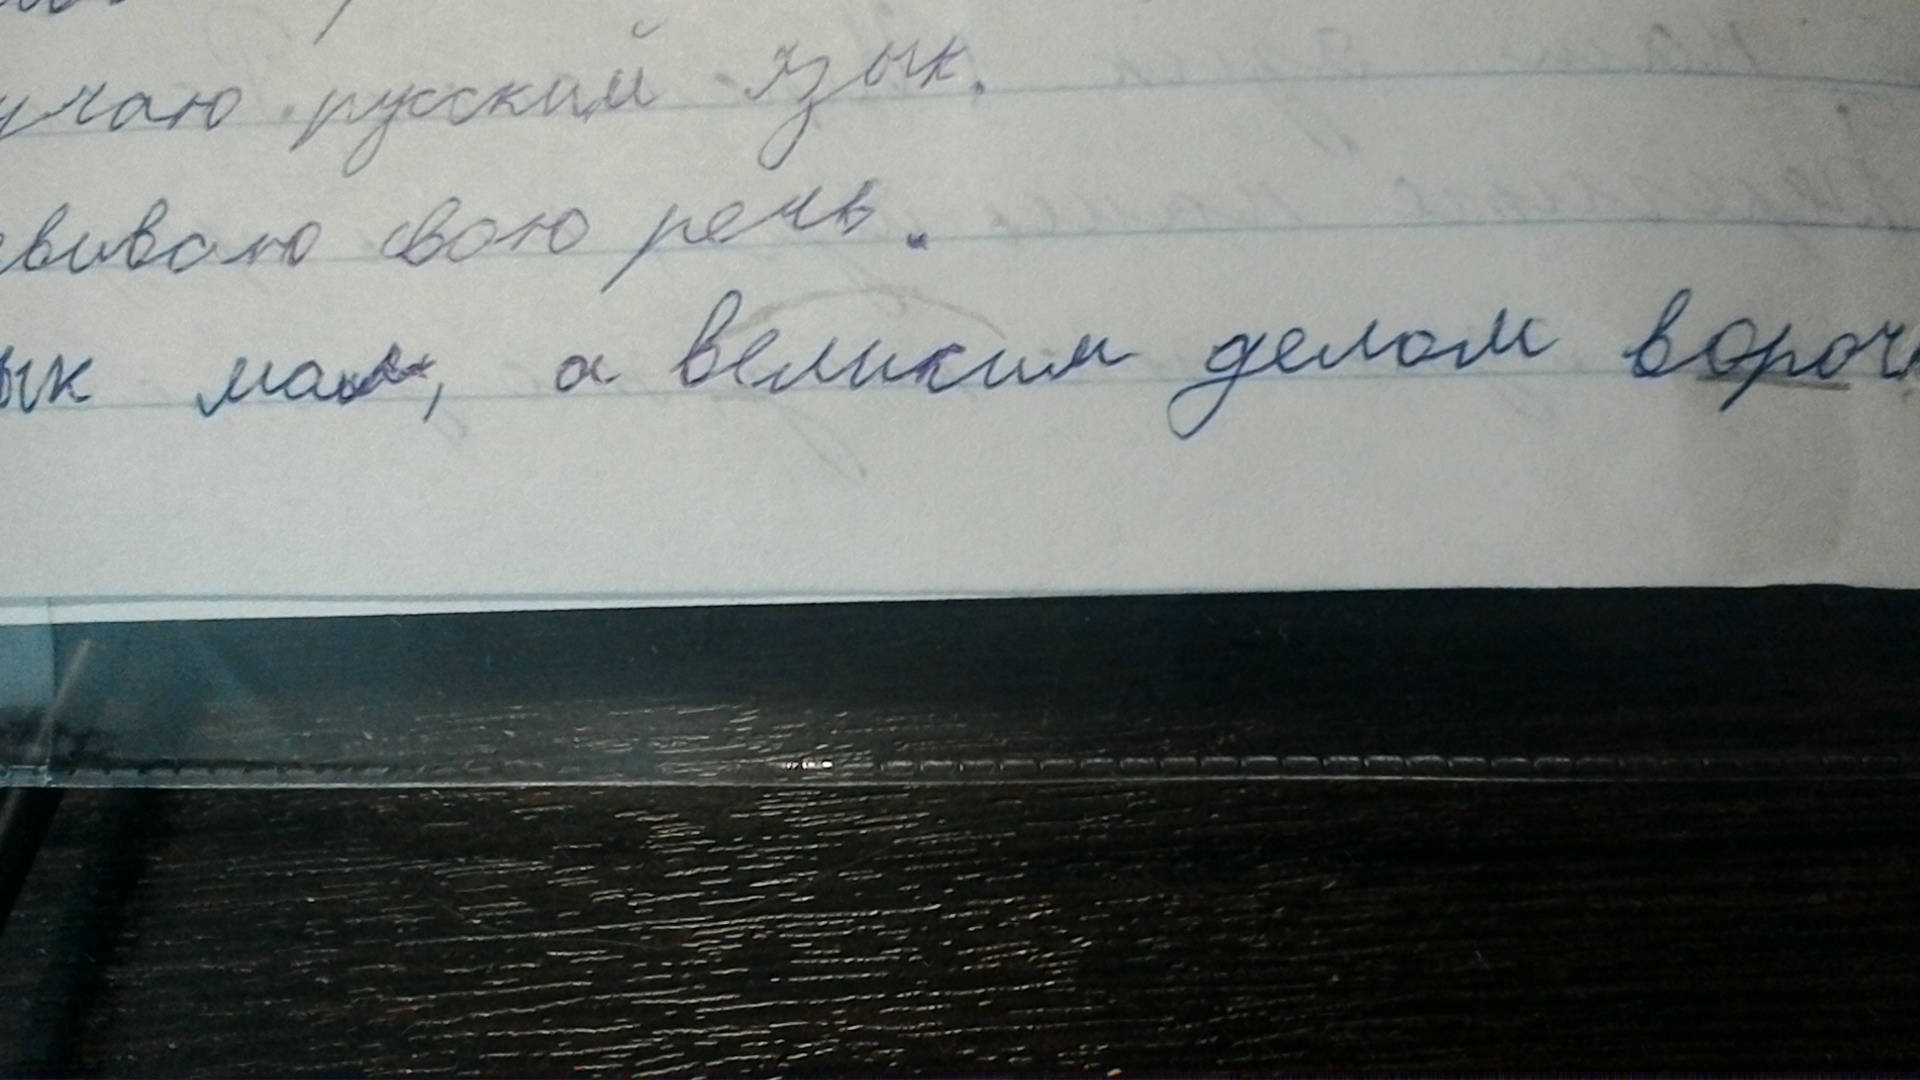 учаю русский язык.
свою речь.
ык мал, а великим делом вороч